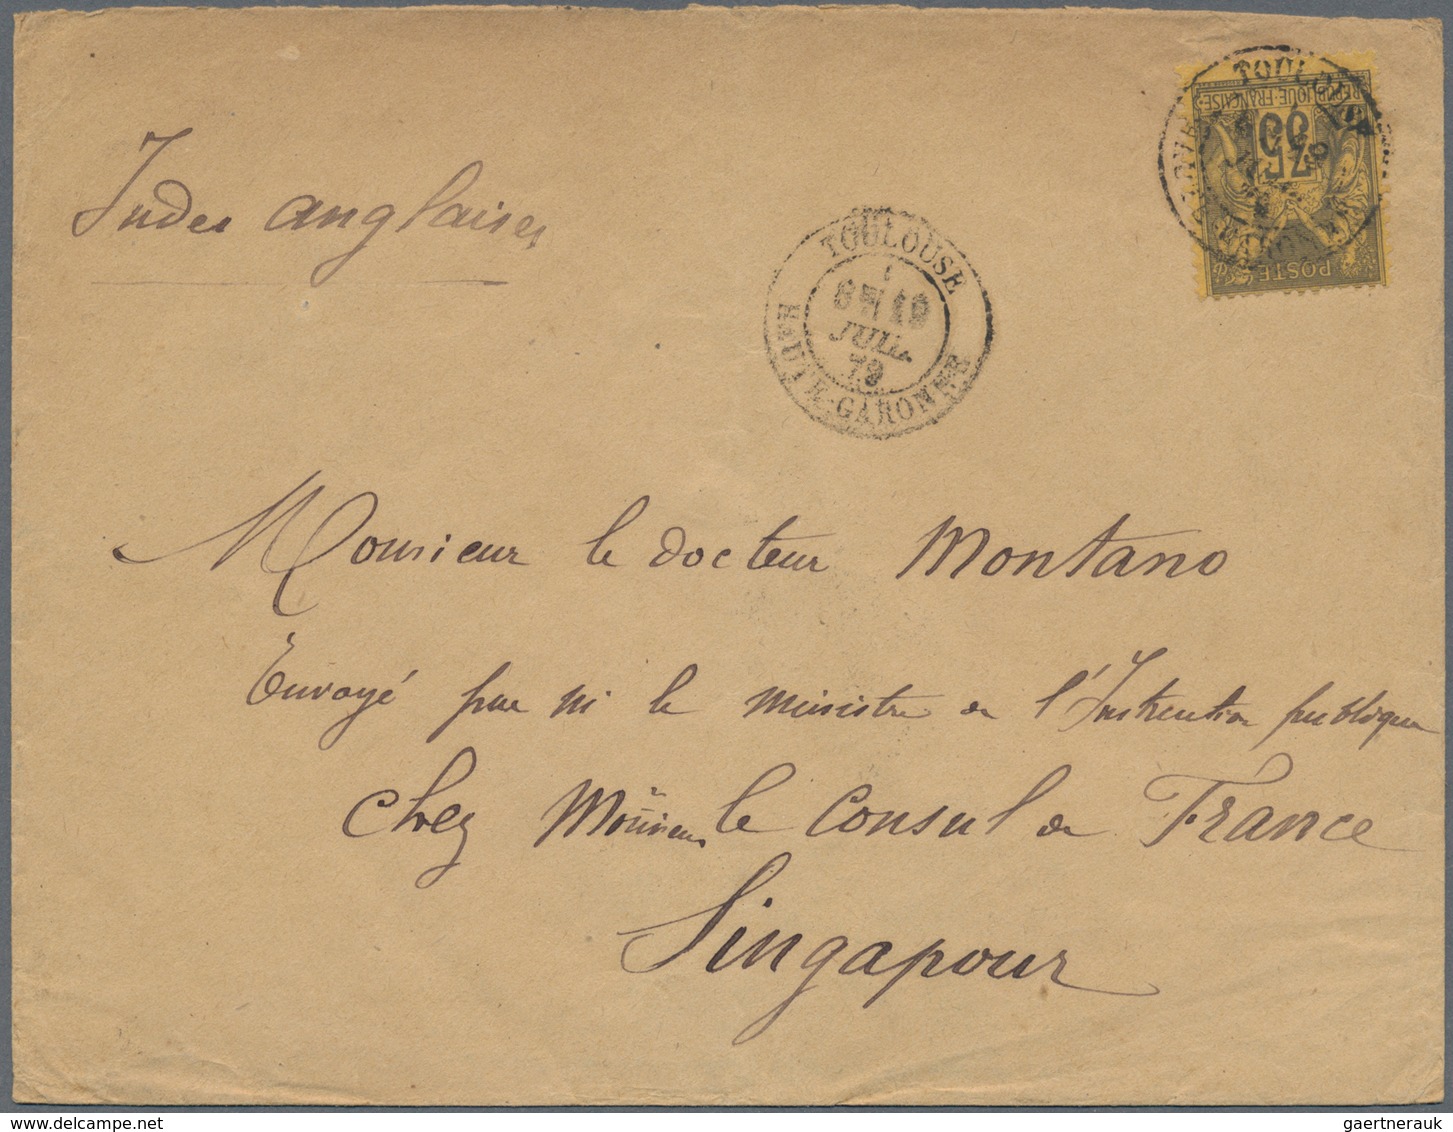 Indes anglaises
TOULOUSE
19
JUIL.
79
HAUTE-GARONNE
TOULOUSE
REPUBLIQUE FRANÇAISE
75
POSTE
Monsieur le docteur Montano
Envoyé par le ministre de l'Instruction publique
chez Monsieur le Consul de France
Singapour
gaertnerauk @ delcampe.net